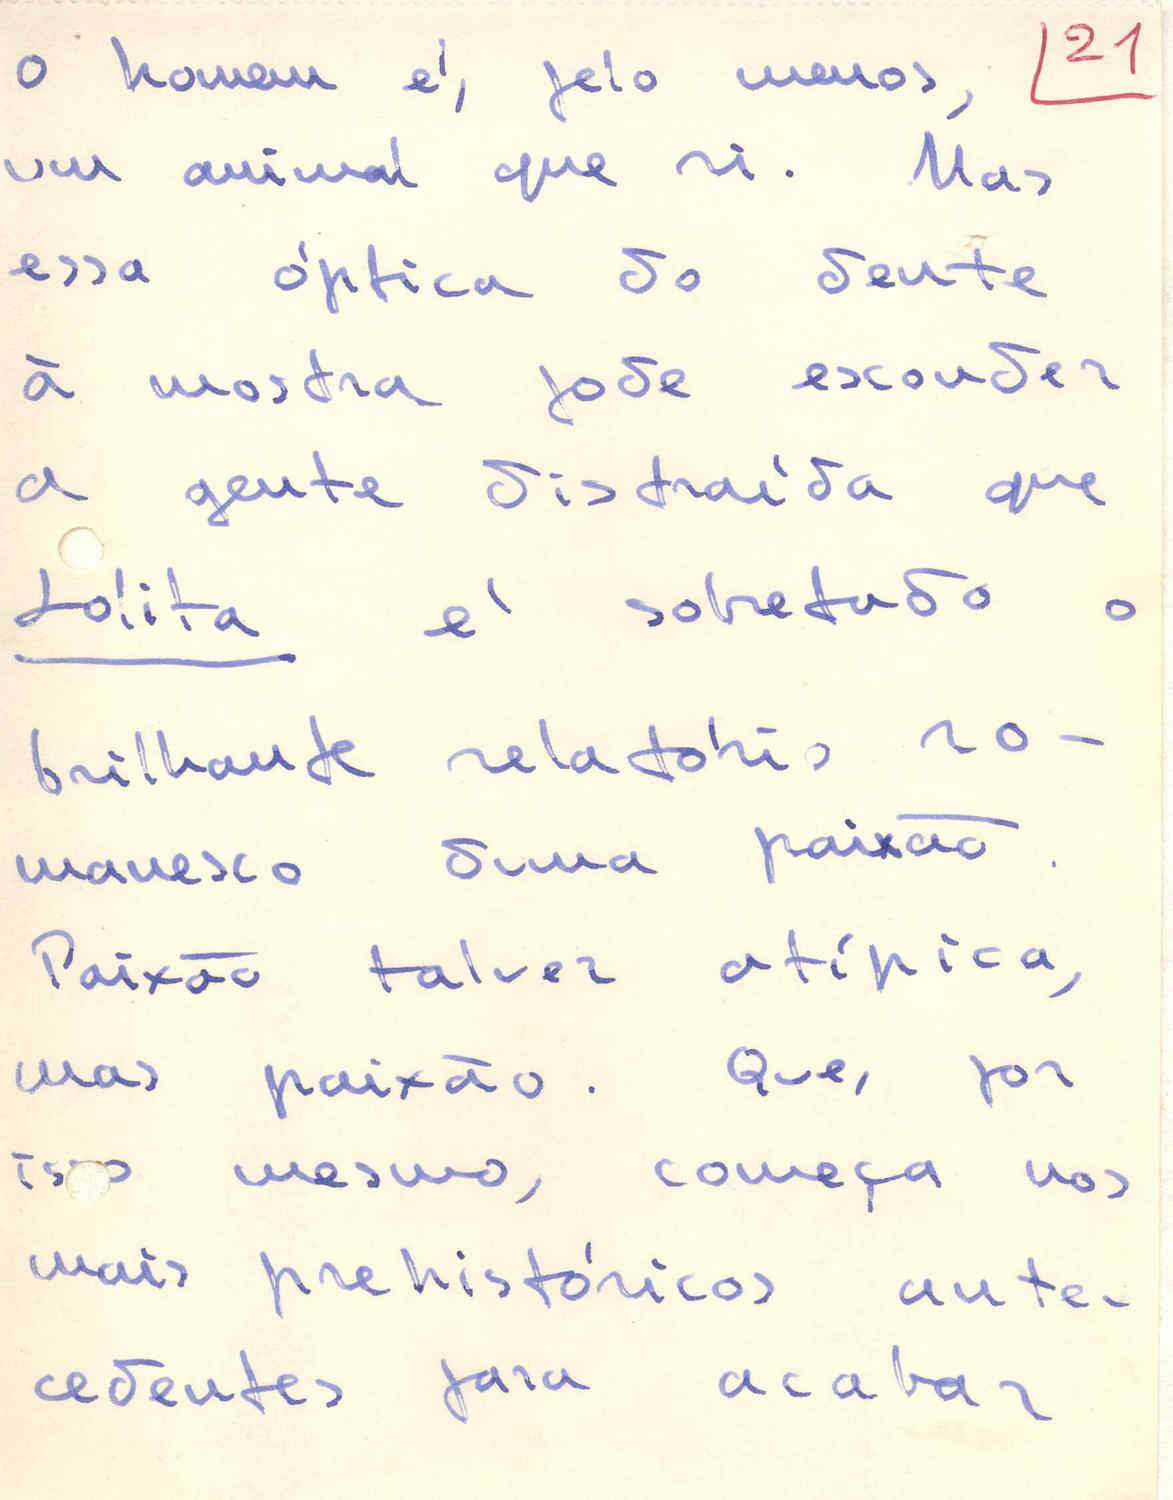 21
o homem é, pelo menos,
um animal que ri. Mas
essa óptica do dente
à mostra pode esconder
a gente distraída que
Lolita é sobretudo o
brilhante relatório ro-
manesco duma paixão.
Paixão talvez atípica,
mas paixão. Que, por
isso mesmo, começa nos
mais prehistóricos ante-
cedentes para acabar